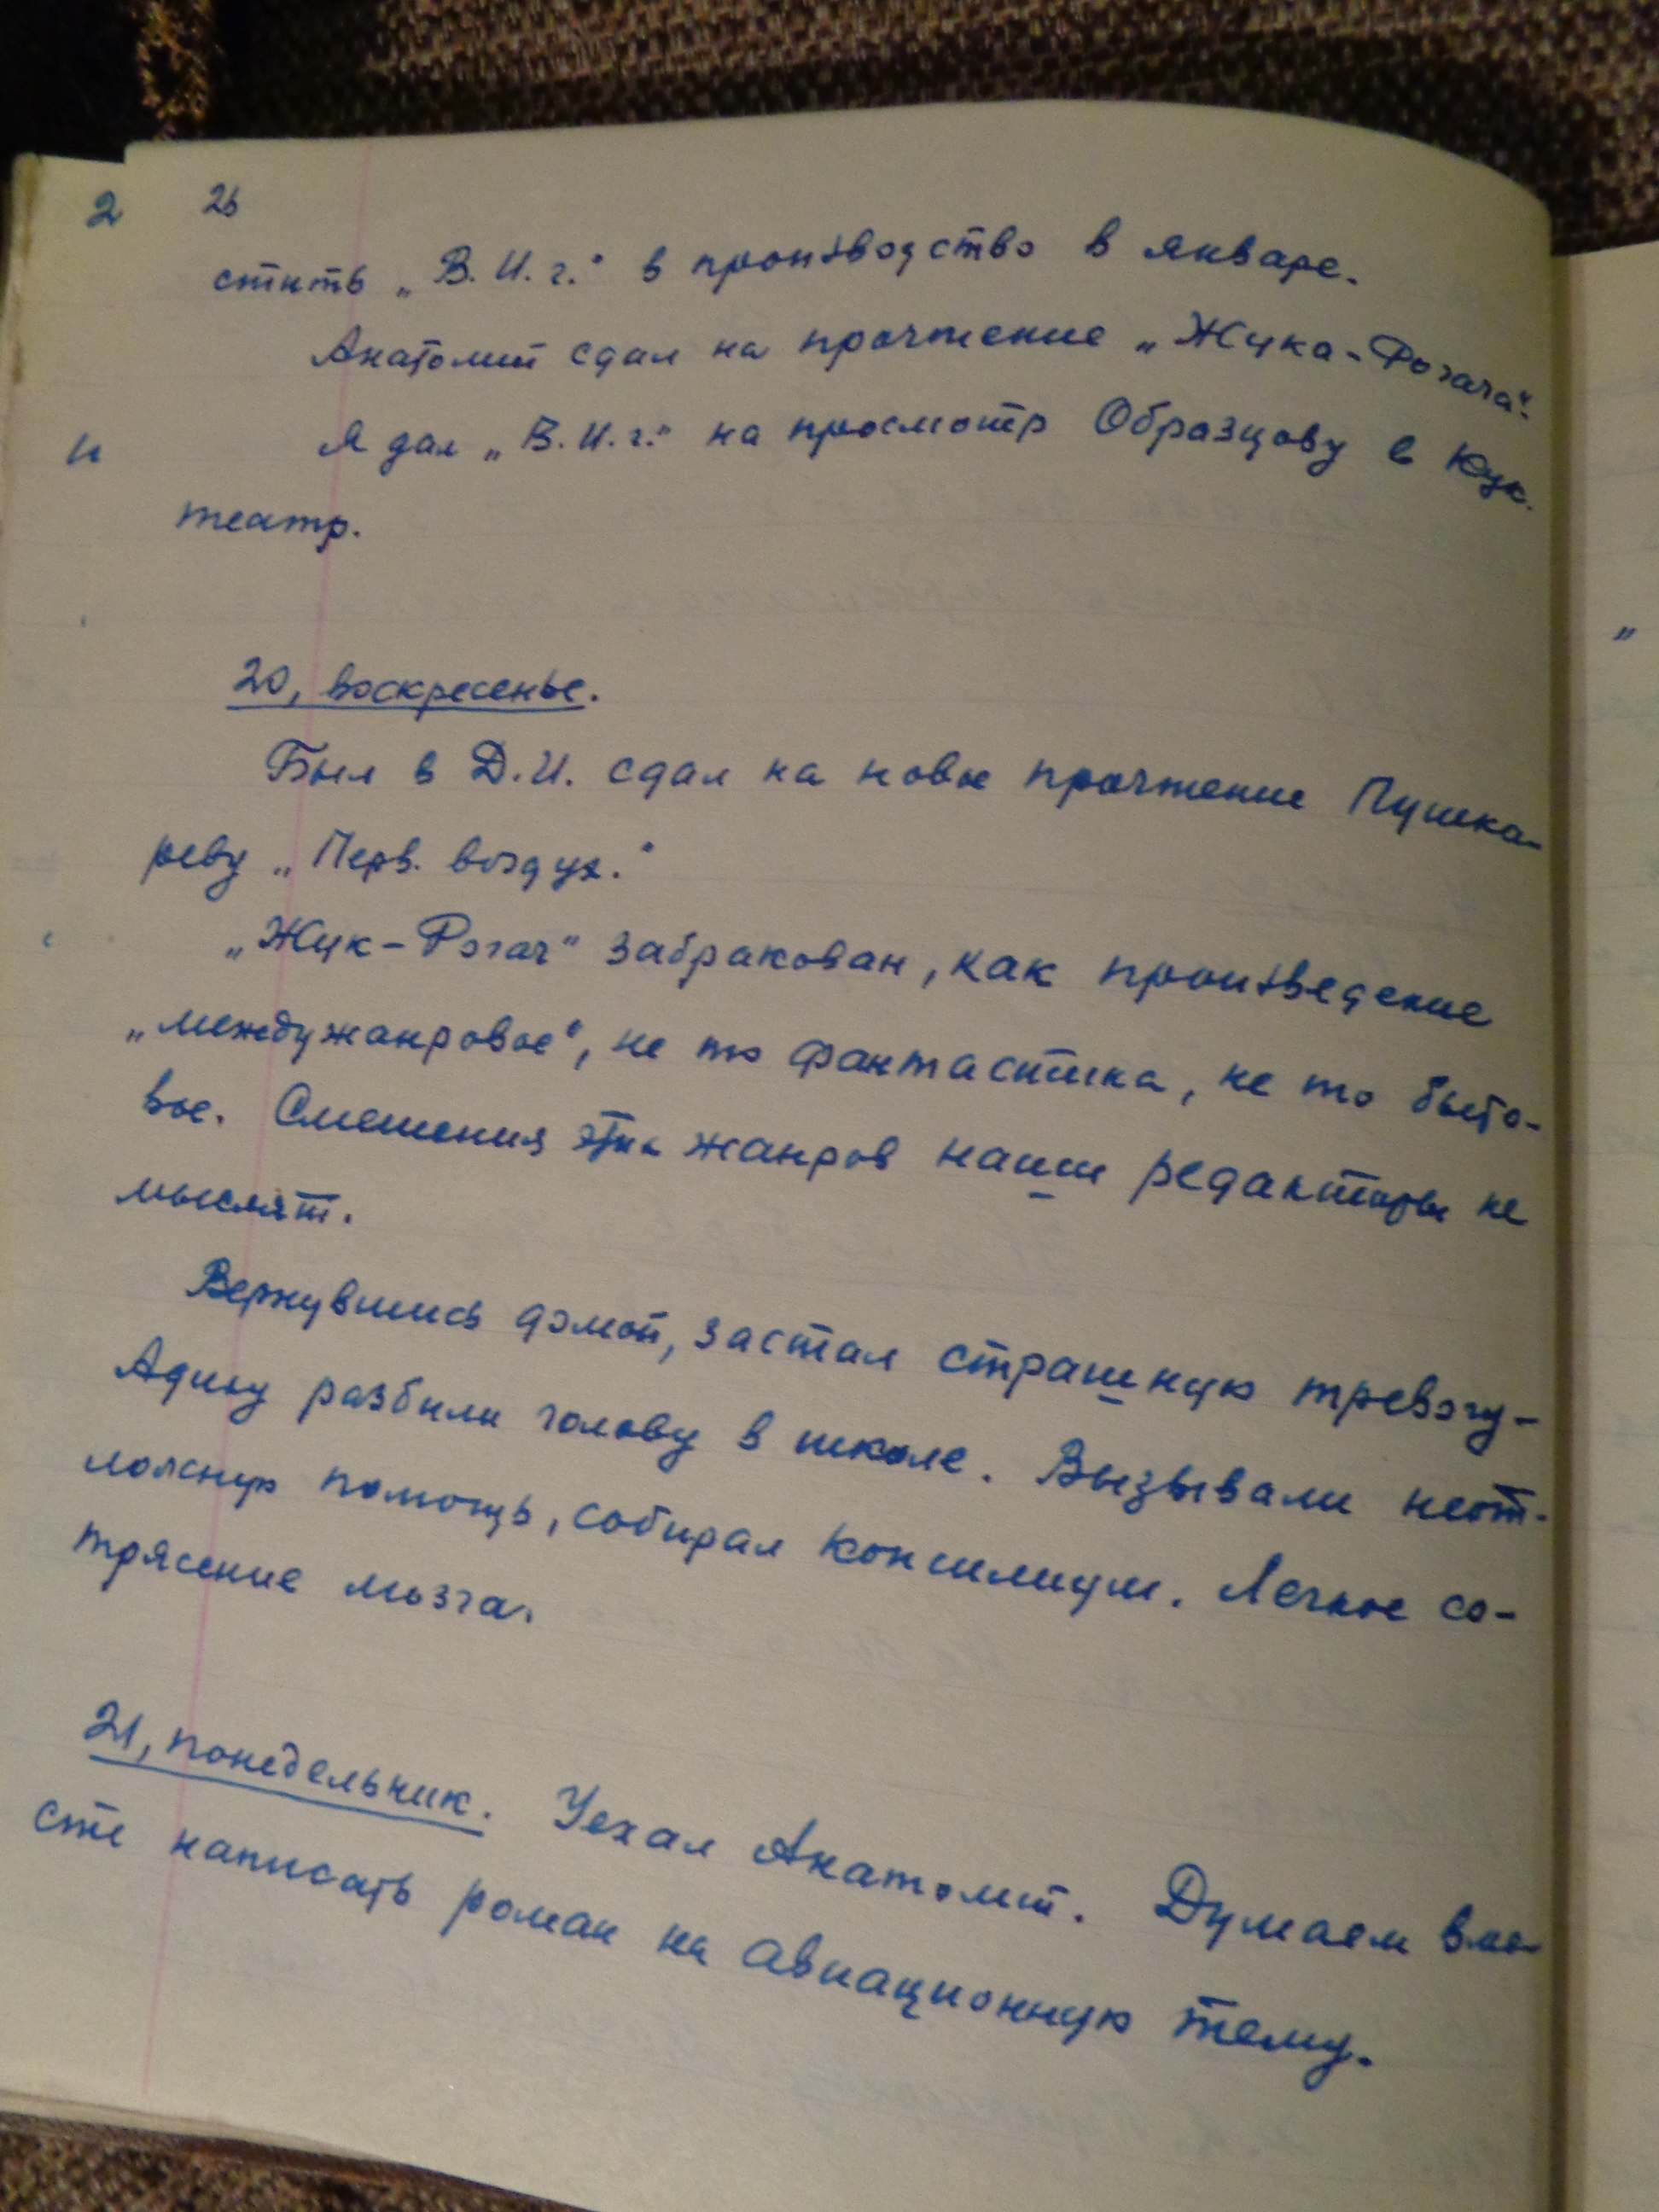 26
стить „В. И. г." в производство в январе.
Анатолий сдал на прочтение „Жука-Рогача".
Я дал „В. И. г." на просмотр Образцову в Кук.
театр.
20, воскресенье.
Был в Д.И. сдал на новое прочтение Пушка-
реву „Перв. воздух."
„Жук-Рогач" забракован, как произведение
„междужанровое", не то фантастика, не то быто-
вое. Смешения этих жанров наши редакторы не
мыслят.
Вернувшись домой, застал страшную тревогу –
Адику разбили голову в школе. Вызывали неот-
ложную помощь, собирал консилиум. Легкое со-
трясение мозга.
21, понедельник. Уехал Анатолий. Думаем вме-
сте написать роман на авиационную тему.